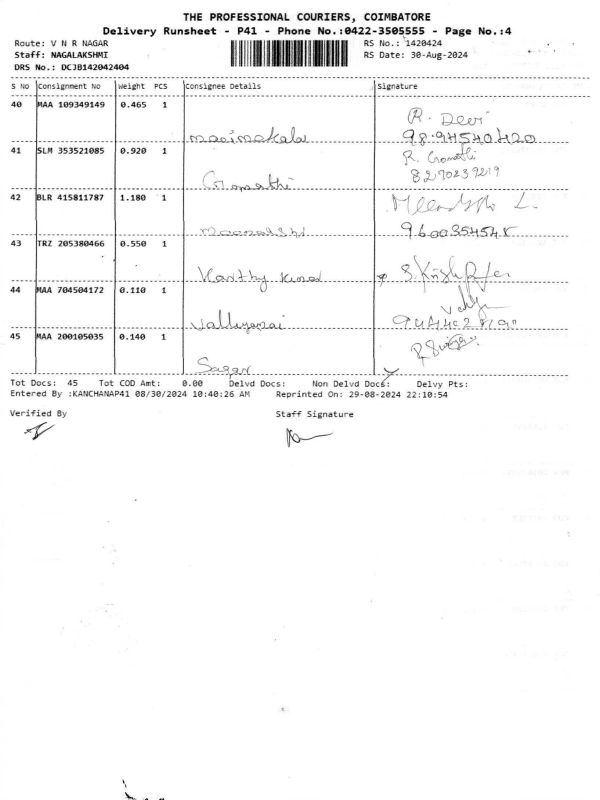 THE PROFESSIONAL COURIERS, COIMBATORE
Delivery Runsheet - P41 - Phone No.:0422-3505555 - Page No.:4
Route: V N R NAGAR
RS No.: 1420424
Staff: NAGALAKSHMI
RS Date: 30-Aug-2024
DRS No.: DCJB142042404
S No Consignment No Weight PCS Consignee Details Signature
40 MAA 109349149 0.465 1
R. Devi
9894540420
41 SLM 353521085 0.920 1
R. Gomathi
8270239219
Gomathi
42 BLR 415811787 1.180 1
9600354548
43 TRZ 205380466 0.550 1
44 MAA 704504172 0.110 1
45 MAA 200105035 0.140 1
Sagar
Tot Docs: 45 Tot COD Amt: 0.00 Delvd Docs: Non Delvd Docs: Delvy Pts:
Entered By :KANCHANAP41 08/30/2024 10:40:26 AM Reprinted On: 29-08-2024 22:10:54
Verified By Staff Signature